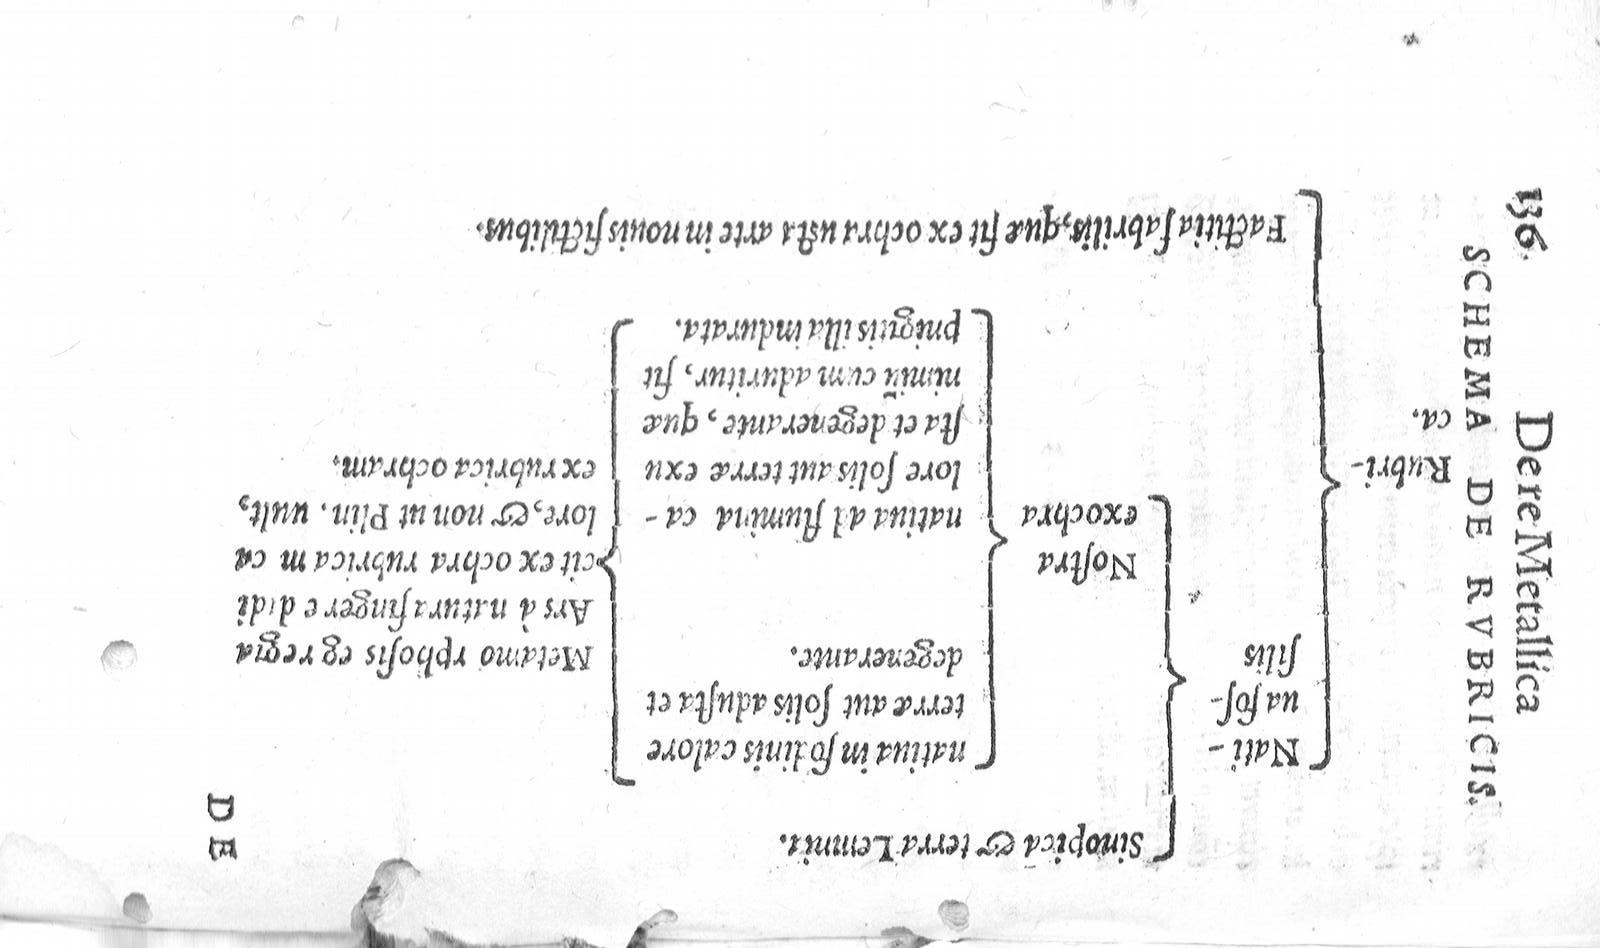 136. De re Metallica
SCHEMA DE RVBRICIS.
Rubri-
ca.
Nati-
ua foſ-
ſilis
Sinopica & terra Lemnia.
Noſtra
ex ochra
natiua in fodinis calore
terræ aut ſolis aduſta et
degenerante.
natiua ad flumina ca-
lore ſolis aut terræ exu
ſta et degenerante, quæ
nimiũ cum aduritur, fit
pnigitis illa indurata.
Metamorphoſis egregia
Ars à natura fingere didi
cit ex ochra rubricam ca
lore, & non ut Plin. uult,
ex rubrica ochram.
Factitia fabrilis, quæ fit ex ochra uſta arte in nouis fictilibus.
DE